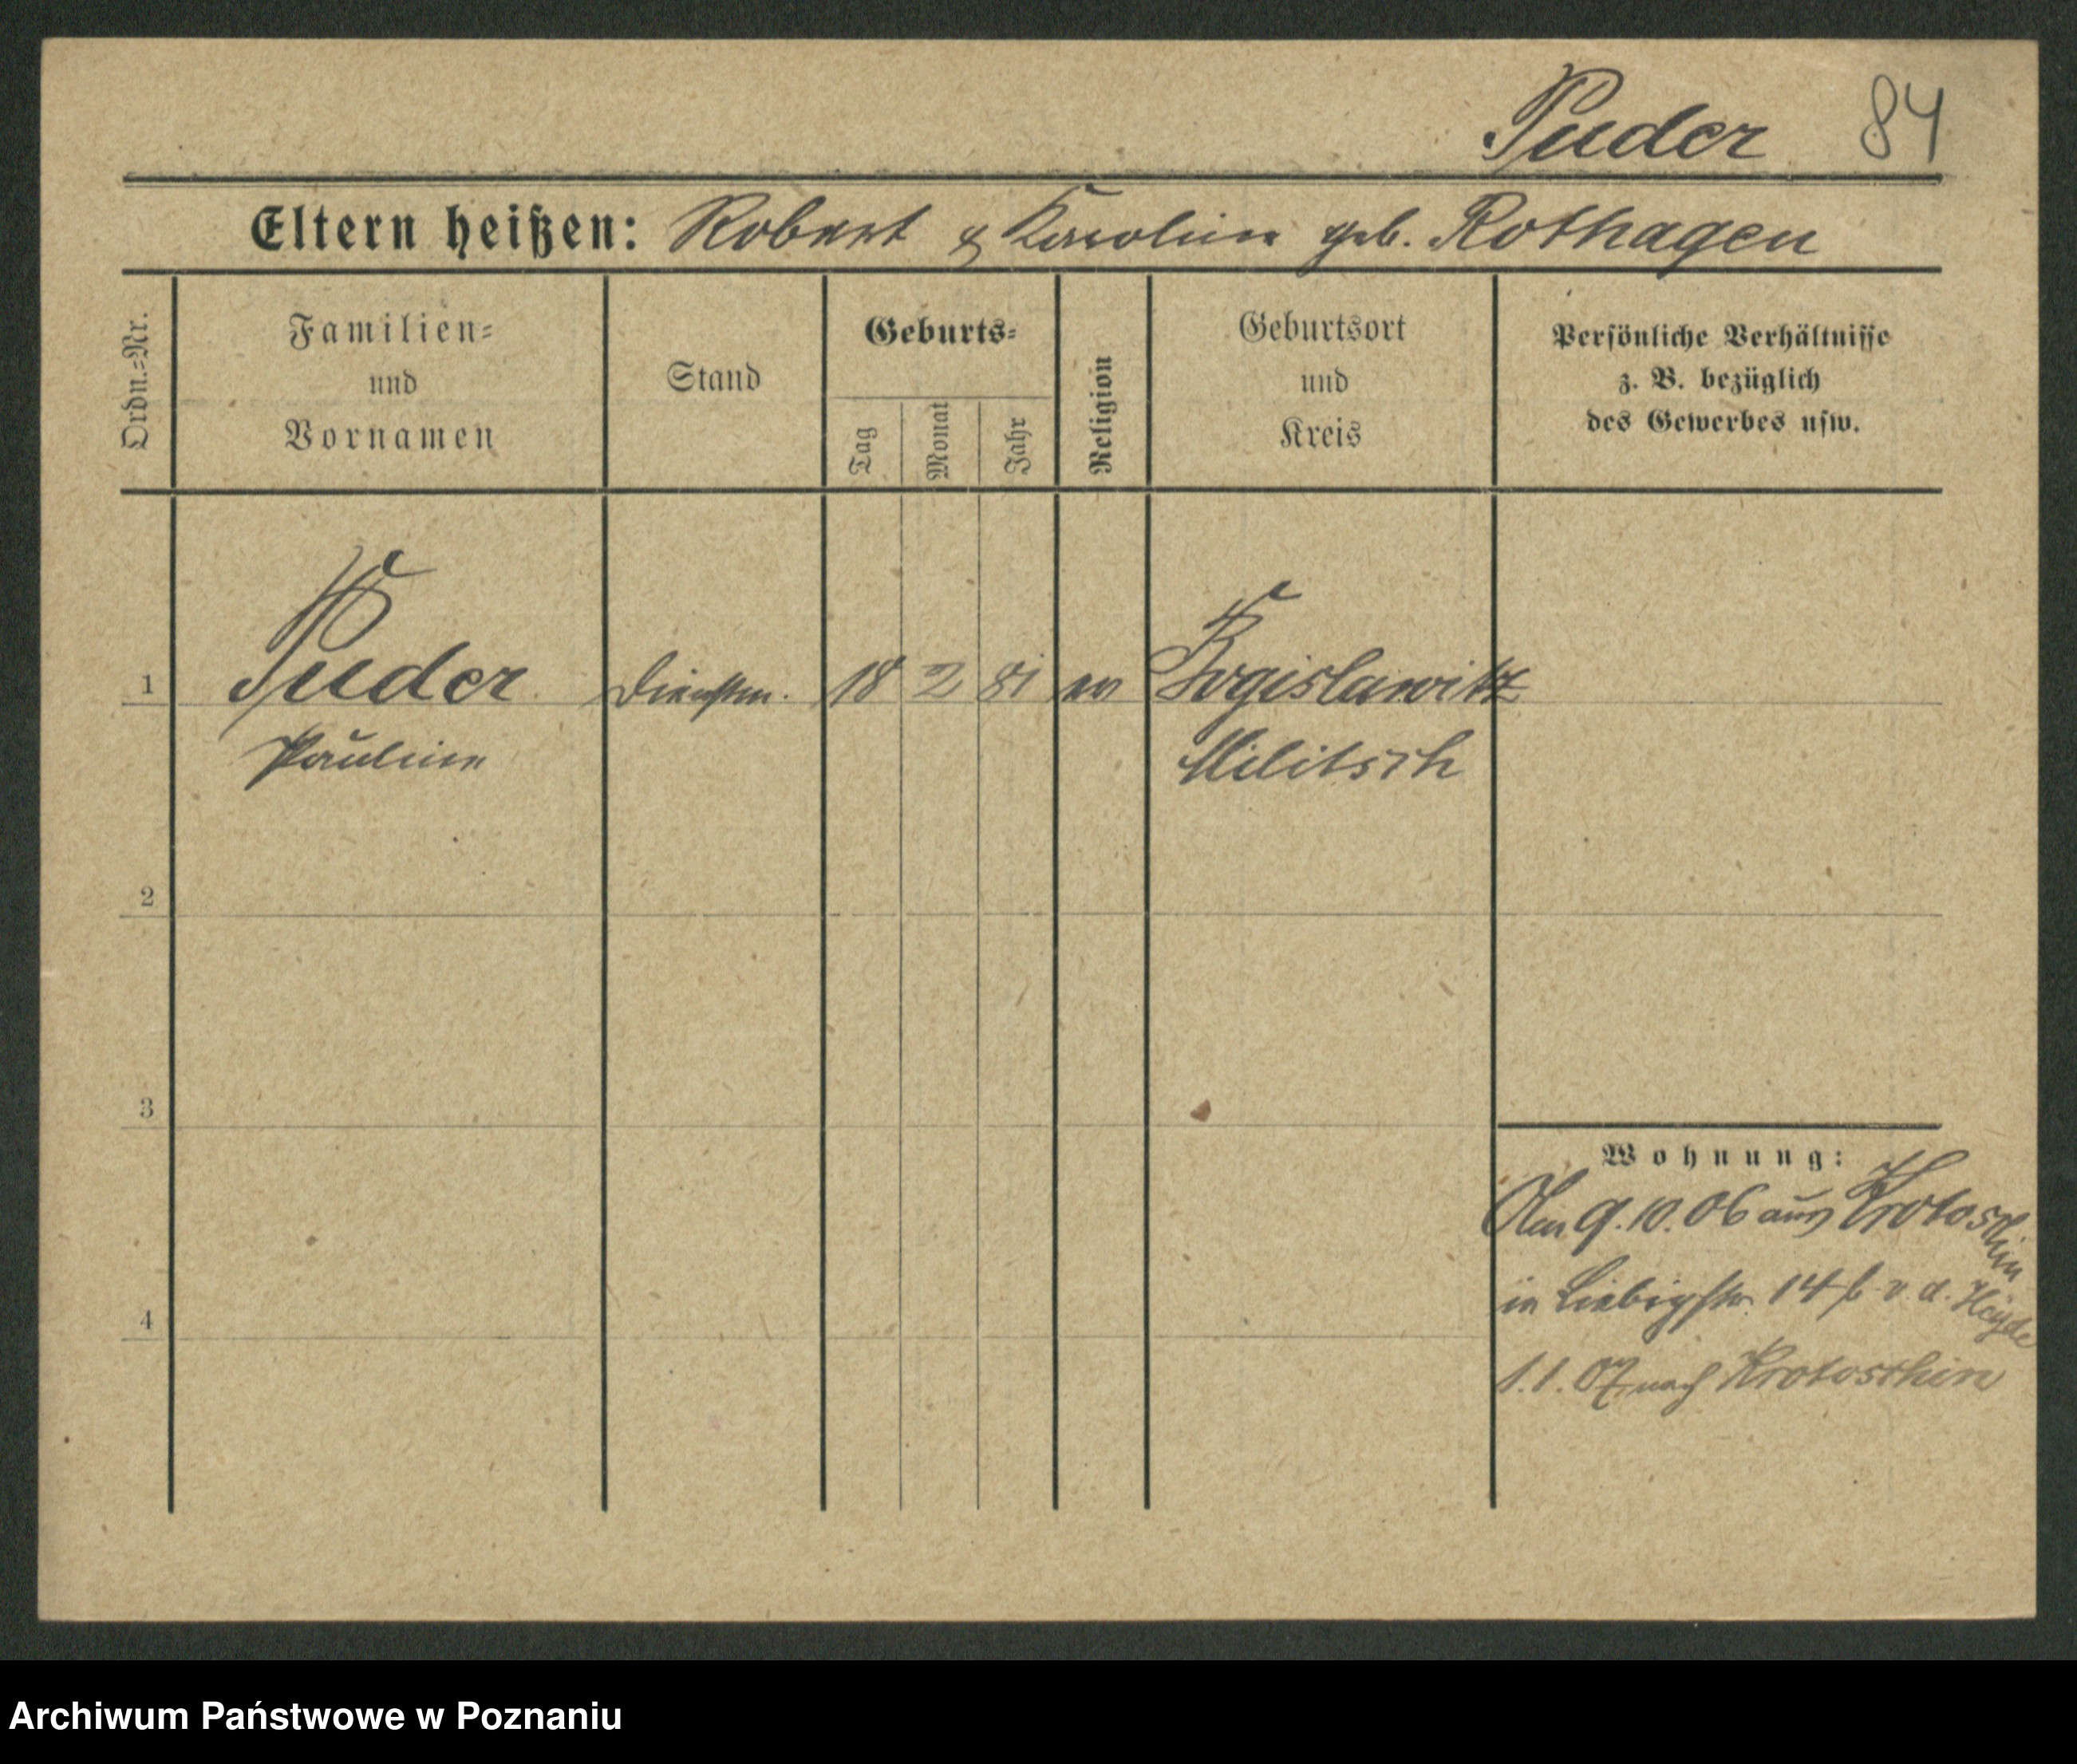 Puder 84
Eltern heißen: Robert & Karoline geb. Rothagen
Ordn.-Nr.
Familien-
und
Vornamen
Stand
Geburts-
Tag
Monat
Jahr
Religion
Geburtsort
und
Kreis
Persönliche Verhältnisse
z. B. bezüglich
des Gewerbes usw.
1 Puder Dienstm. 18 2 81 ev Bogislawitz
Pauline Militsch
2
3
4
Wohnung:
Am 9.10.06 aus Krotoschin
in Liebigstr. 14 b. v. d. Heyde
1.1.07 nach Krotoschin
Archiwum Państwowe w Poznaniu